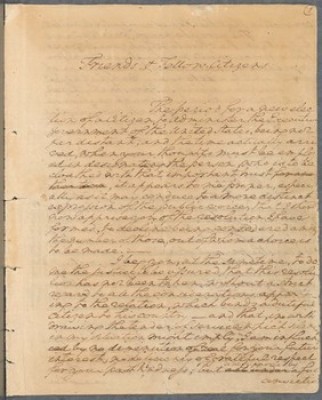 Friends & Fellow-Citizens
The period for a new elec-
tion of a citizen, to administer the Executive
government of the United States, being not
far distant, and the time actually arri-
ved, when your thoughts must be employ-
ed in designating the person, who is to be
cloathed with that important trust
it appears to me proper, especi-
ally as it may conduce to a more distinct
expression of the public voice, that I should
now apprise you of the resolution I have
formed, to decline being considered among
the number of those, out of whom a choice is
to be made.
I beg you, at the same time, to do
me the justice to be assured, that this resolu-
tion has not been taken, without a strict
regard to all the considerations appertain-
ing to the relation, which binds a dutiful
citizen to his country — and that, in with
drawing the tender of service which silence
in my situation might imply, I am influen-
ced by no diminution of zeal for your future
interest, no deficiency of grateful respect
for your past kindness; but